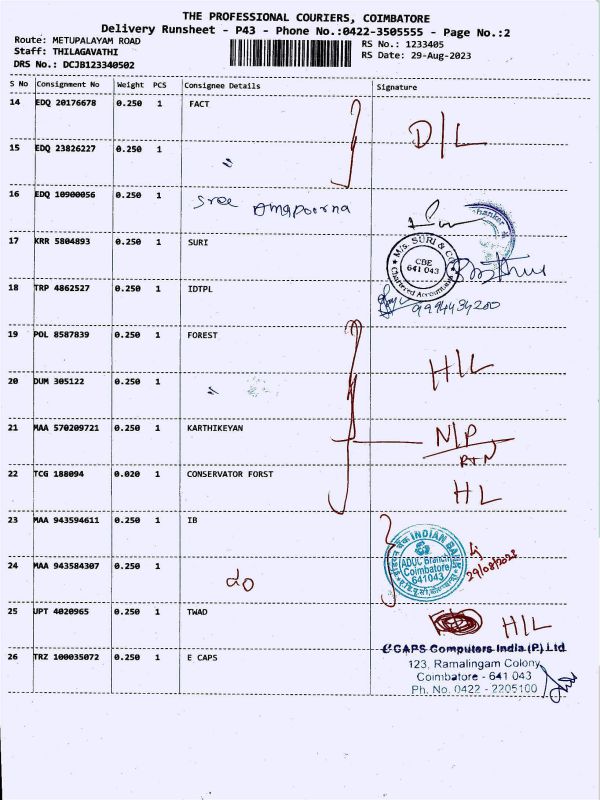 THE PROFESSIONAL COURIERS, COIMBATORE
Delivery Runsheet - P43 - Phone No.:0422-3505555 - Page No.:2
Route: METUPALAYAM ROAD
Staff: THILAGAVATHI
DRS No.: DCJB123340502
RS No.: 1233405
RS Date: 29-Aug-2023
S No Consignment No Weight PCS Consignee Details Signature
14 EDQ 20176678 0.250 1 FACT
D/L
15 EDQ 23826227 0.250 1 "
16 EDQ 10900056 0.250 1 Sree
17 KRR 5804893 0.250 1 SURI
M/s. SURI & CO
CBE
641 043
Chartered Accountants
18 TRP 4862527 0.250 1 IDTPL
9994434200
19 POL 8587839 0.250 1 FOREST
H/L
20 DUM 305122 0.250 1 "
21 MAA 570209721 0.250 1 KARTHIKEYAN
N/P
RTN
22 TCG 188094 0.020 1 CONSERVATOR FORST
HL
23 MAA 943594611 0.250 1 IB
INDIAN BANK
ADUC Branch
Coimbatore
641043
29/08/2023
24 MAA 943584307 0.250 1 do
25 UPT 4020965 0.250 1 TWAD
H/L
26 TRZ 100035072 0.250 1 E CAPS
E CAPS Computers India (P) Ltd
123, Ramalingam Colony
Coimbatore - 641 043
Ph. No. 0422 - 2205100